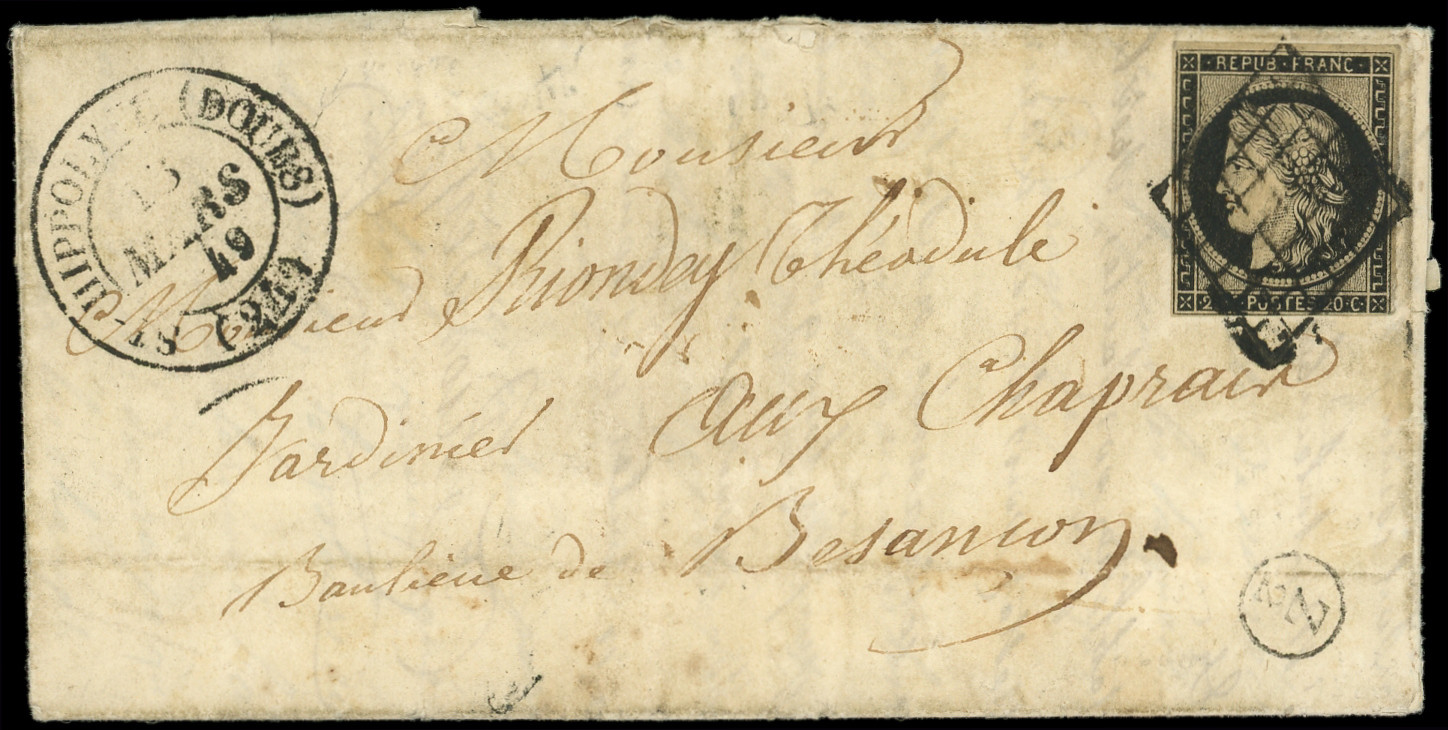 ST HIPPOLYTE (DOUBS) (24)
13
MARS
49
REPUB FRANC
20 C POSTES 20 C
Monsieur
Monsieur Riondey Théodule
Jardinier aux Chaprais
Banlieue de Besancon